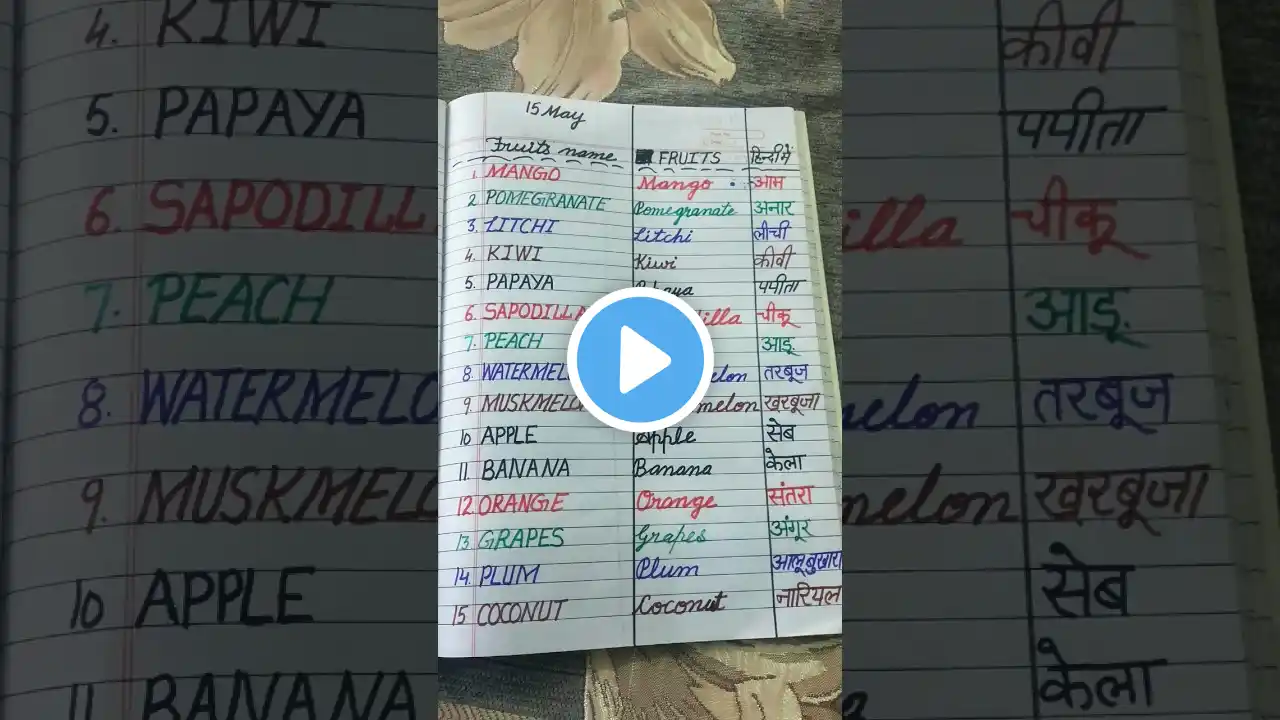 15 May
Fruits name FRUITS हिन्दी में
1. MANGO Mango आम
2. POMEGRANATE Pomegranate अनार
3. LITCHI Litchi लीची
4. KIWI Kiwi कीवी
5. PAPAYA पपीता
6. SAPODILLA illa चीकू
7. PEACH आडू.
8. WATERMEL elon तरबूज
9. MUSKMELO melon खरबूजा
10 APPLE Apple सेब
11. BANANA Banana केला
12. ORANGE Orange संतरा
13. GRAPES Grapes अंगूर
14. PLUM Plum आलूबुखारा
15 COCONUT Coconut नारियल